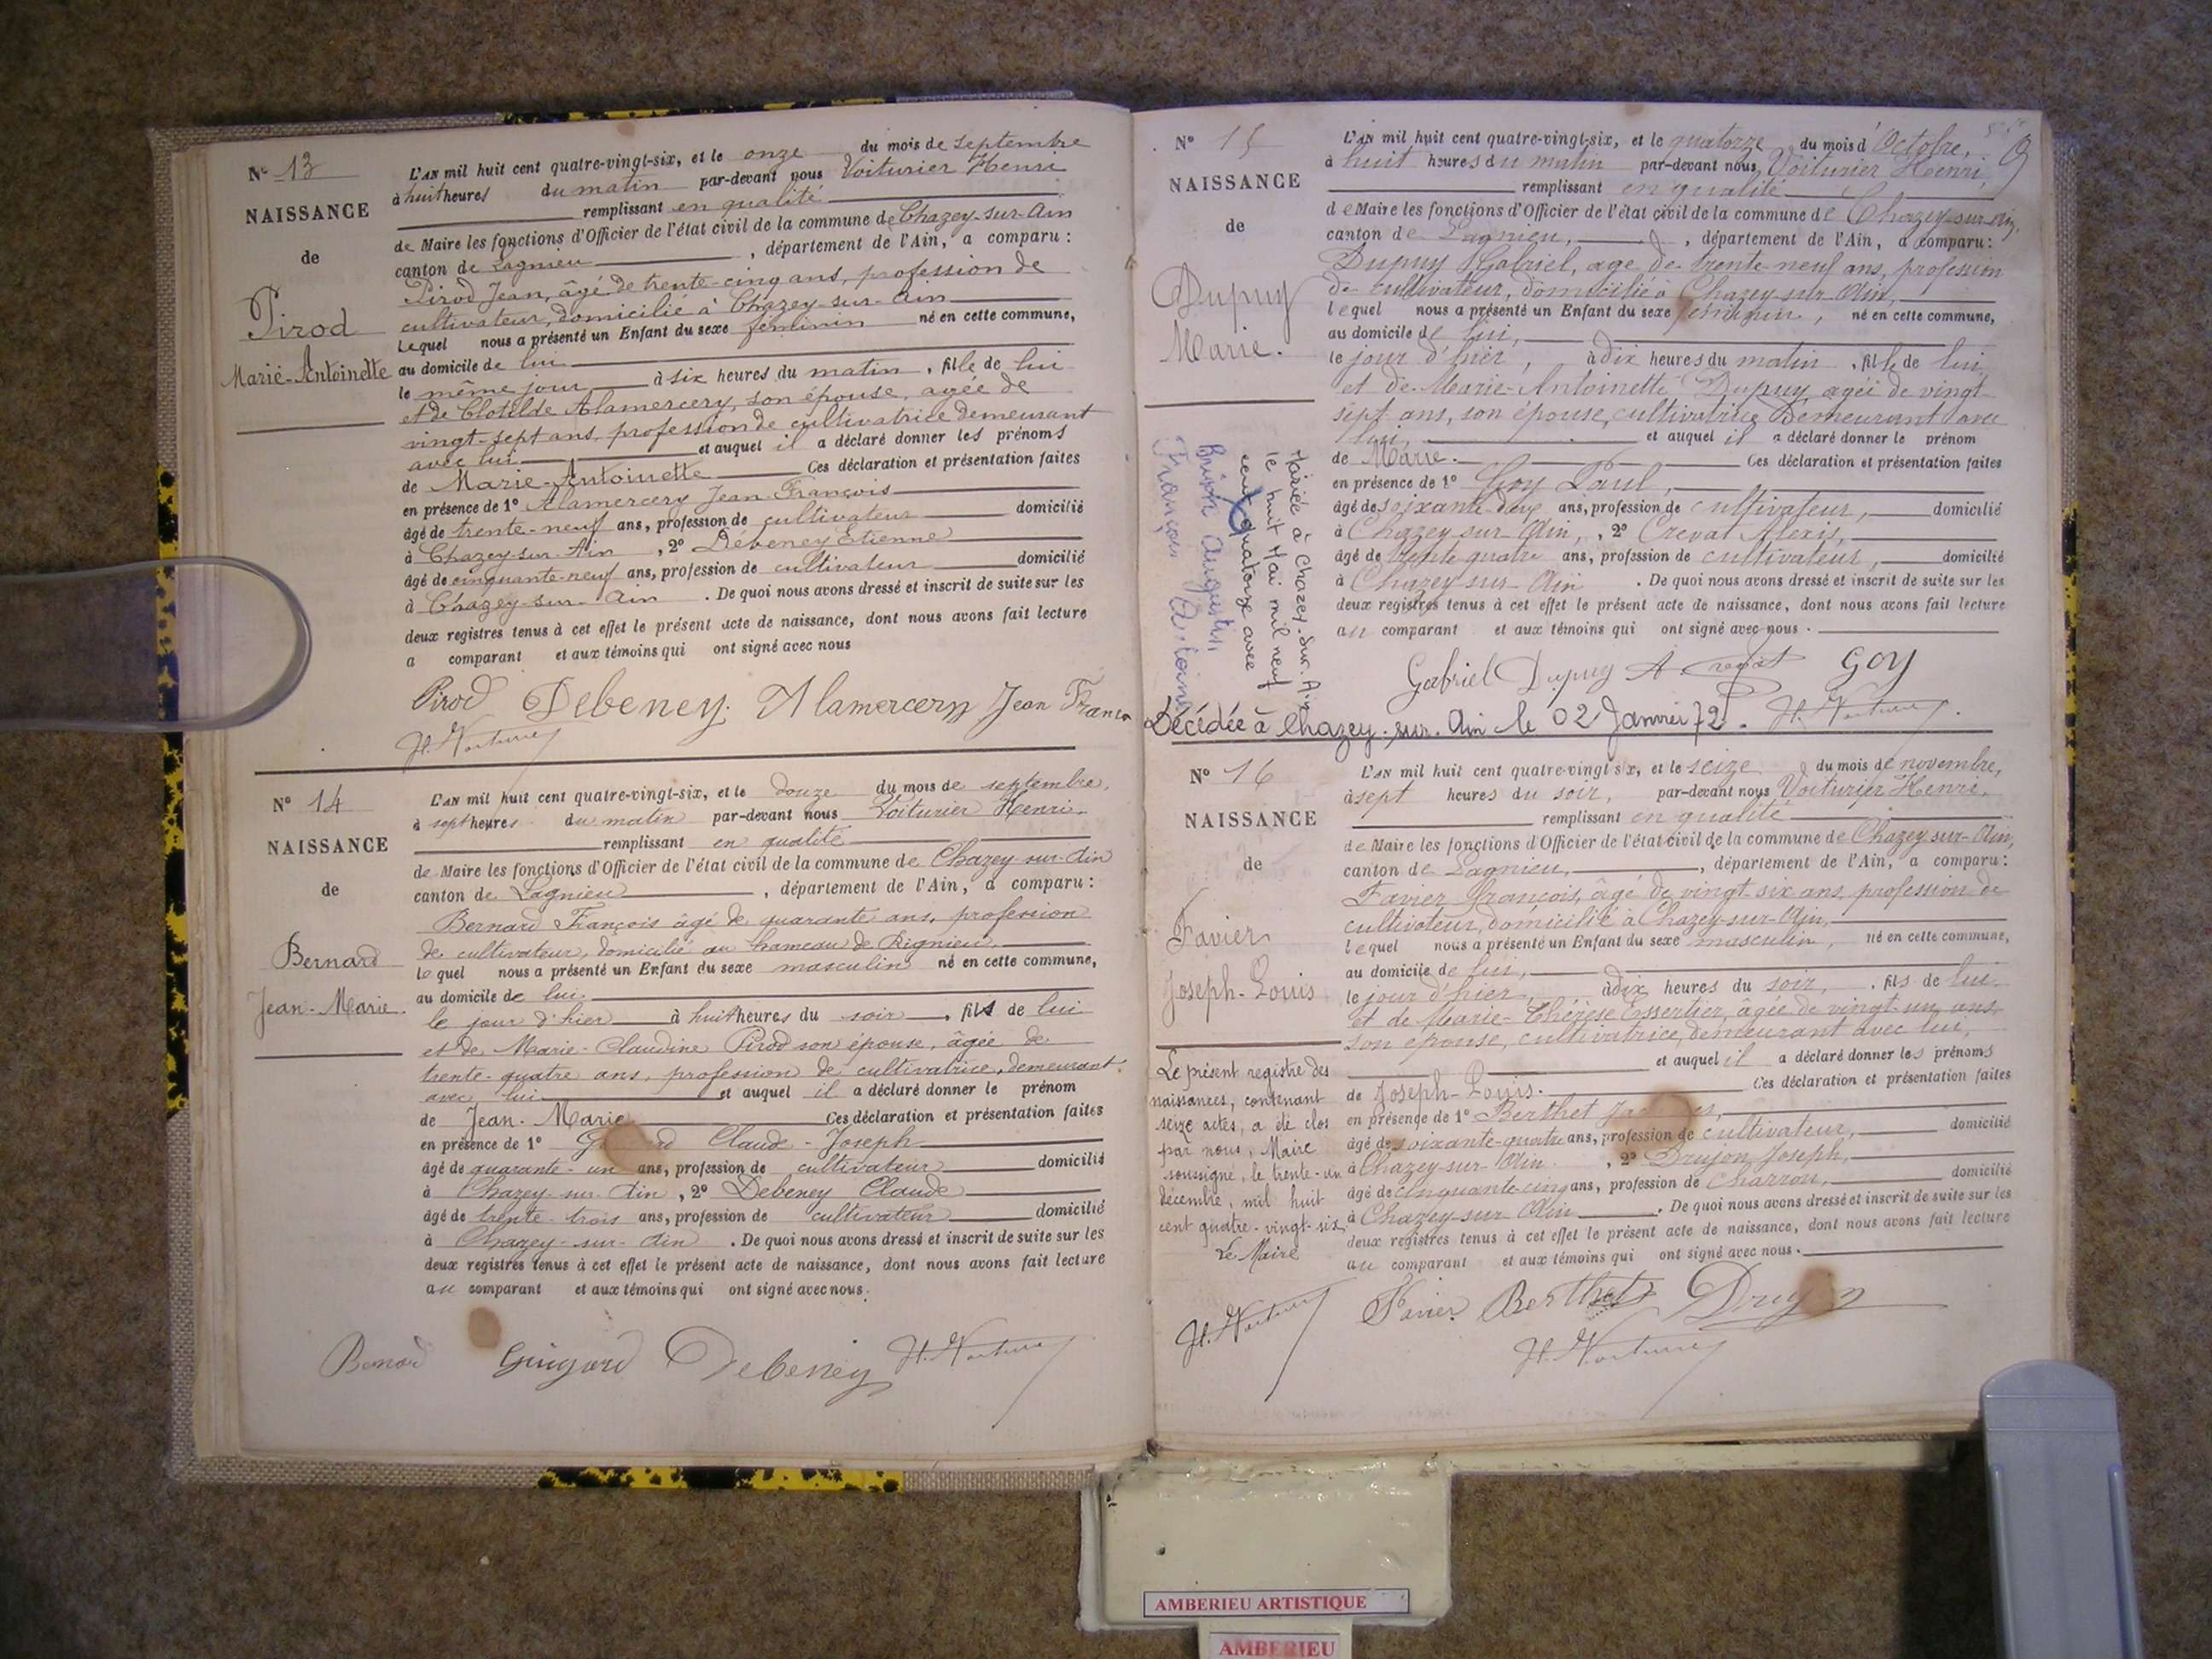 N° 13
NAISSANCE
de
Pirod
Marie-Antoinette
L'AN mil huit cent quatre-vingt-six, et le onze du mois de septembre
à huit heures du matin par-devant nous Voiturier Henri
remplissant en qualité
de Maire les fonctions d'Officier de l'état civil de la commune de Chazey-sur-Ain
canton de Lagnieu, département de l'Ain, a comparu :
Pirod Jean, âgé de trente-cinq ans, profession de
cultivateur, domicilié à Chazey-sur-Ain
Lequel nous a présenté un Enfant du sexe féminin né en cette commune,
au domicile de lui
le même jour à six heures du matin, fille de lui
et de Clotilde Alamercery, son épouse, agée de
vingt-sept ans, profession de cultivatrice demeurant
avec lui et auquel il a déclaré donner les prénoms
de Marie-Antoinette Ces déclaration et présentation faites
en présence de 1° Alamercery Jean-François
âgé de trente-neuf ans, profession de cultivateur domicilié
à Chazey-sur-Ain, 2° Debeney Etienne
âgé de cinquante-neuf ans, profession de cultivateur domicilié
à Chazey-sur-Ain. De quoi nous avons dressé et inscrit de suite sur les
deux registres tenus à cet effet le présent acte de naissance, dont nous avons fait lecture
a comparant et aux témoins qui ont signé avec nous
Pirod Debeney. Alamercery Jean Franco
H. Voiturier
N° 14
NAISSANCE
de
Bernard
Jean-Marie.
L'AN mil huit cent quatre-vingt-six, et le douze du mois de septembre,
à sept heures du matin par-devant nous Voiturier Henri,
remplissant en qualité
de Maire les fonctions d'Officier de l'état civil de la commune de Chazey-sur-Ain
canton de Lagnieu, département de l'Ain, a comparu :
Bernard François âgé de quarante ans, profession
de cultivateur, domicilié au hameau de Rignieu,
le quel nous a présenté un Enfant du sexe masculin né en cette commune,
au domicile de lui
le jour d'hier à huit heures du soir, fils de lui
et de Marie-Claudine Pirod son épouse, âgée de
trente-quatre ans, profession de cultivatrice, demeurant
avec lui et auquel il a déclaré donner le prénom
de Jean-Marie Ces déclaration et présentation faites
en présence de 1° Claude-Joseph
âgé de quarante-un ans, profession de cultivateur domicilié
à Chazey-sur-Ain, 2° Debeney Claude
âgé de trente-trois ans, profession de cultivateur domicilié
à Chazey-sur-Ain. De quoi nous avons dressé et inscrit de suite sur les
deux registres tenus à cet effet le présent acte de naissance, dont nous avons fait lecture
au comparant et aux témoins qui ont signé avec nous.
Debeney H. Voiturier
N° 15
NAISSANCE
de
Dupuy
Marie.
Mariée à Chazey-sur-Ain
le huit Mai mil neuf
cent quatorze avec
François Antoine
L'AN mil huit cent quatre-vingt-six, et le quatorze du mois d'Octobre, 9
à huit heures du matin par-devant nous, Voiturier Henri,
remplissant en qualité
de Maire les fonctions d'Officier de l'état civil de la commune de Chazey-sur-Ain,
canton de Lagnieu, département de l'Ain, a comparu:
Dupuy Gabriel, age de trente-neuf ans, profession
de cultivateur, domicilié à Chazey-sur-Ain,
lequel nous a présenté un Enfant du sexe féminin, né en cette commune,
au domicile de lui,
le jour d'hier, à dix heures du matin, fille de lui
et de Marie-Antoinette Dupuy, agée de vingt
sept ans, son épouse, cultivatrice demeurant avec
lui, et auquel il a déclaré donner le prénom
de Marie. Ces déclaration et présentation faites
en présence de 1° Goy Paul,
âgé de soixante-deux ans, profession de cultivateur, domicilié
à Chazey-sur-Ain, 2° Crevat Alexis,
âgé de trente quatre ans, profession de cultivateur, domicilié
à Chazey-sur-Ain. De quoi nous avons dressé et inscrit de suite sur les
deux registres tenus à cet effet le présent acte de naissance, dont nous avons fait lecture
au comparant et aux témoins qui ont signé avec nous.
Gabriel Dupuy A Crevat Goy
Décédée à Chazey-sur-Ain le 02 Janvier 72. H. Voiturier
N° 16
NAISSANCE
de
Favier
Joseph-Louis
L'AN mil huit cent quatre-vingt six, et le seize du mois de novembre,
à sept heures du soir, par-devant nous Voiturier Henri,
remplissant en qualité
de Maire les fonctions d'Officier de l'état civil de la commune de Chazey-sur-Ain,
canton de Lagnieu, département de l'Ain, a comparu:
Favier François, âgé de vingt-six ans, profession de
cultivateur, domicilié à Chazey-sur-Ain,
lequel nous a présenté un Enfant du sexe masculin, né en cette commune,
au domicile de lui,
le jour d'hier, à dix heures du soir, fils de lui
et de Marie-Thérèse Essertier, âgée de vingt-un ans,
son épouse, cultivatrice, demeurant avec lui,
et auquel il a déclaré donner les prénoms
de Joseph-Louis. Ces déclaration et présentation faites
en présence de 1° Berthet
âgé de soixante-quatre ans, profession de cultivateur, domicilié
à Chazey-sur-Ain, 2° Drujon Joseph,
âgé de cinquante-cinq ans, profession de charron, domicilié
à Chazey-sur-Ain. De quoi nous avons dressé et inscrit de suite sur les
deux registres tenus à cet effet le présent acte de naissance, dont nous avons fait lecture
au comparant et aux témoins qui ont signé avec nous.
Favier Berthet Drujon
H. Voiturier
Le présent registre des
naissances, contenant
seize actes, a été clos
par nous, Maire
soussigné, le trente-un
décembre, mil huit
cent quatre-vingt-six
Le Maire
H. Voiturier
AMBERIEU ARTISTIQUE
AMBERIEU